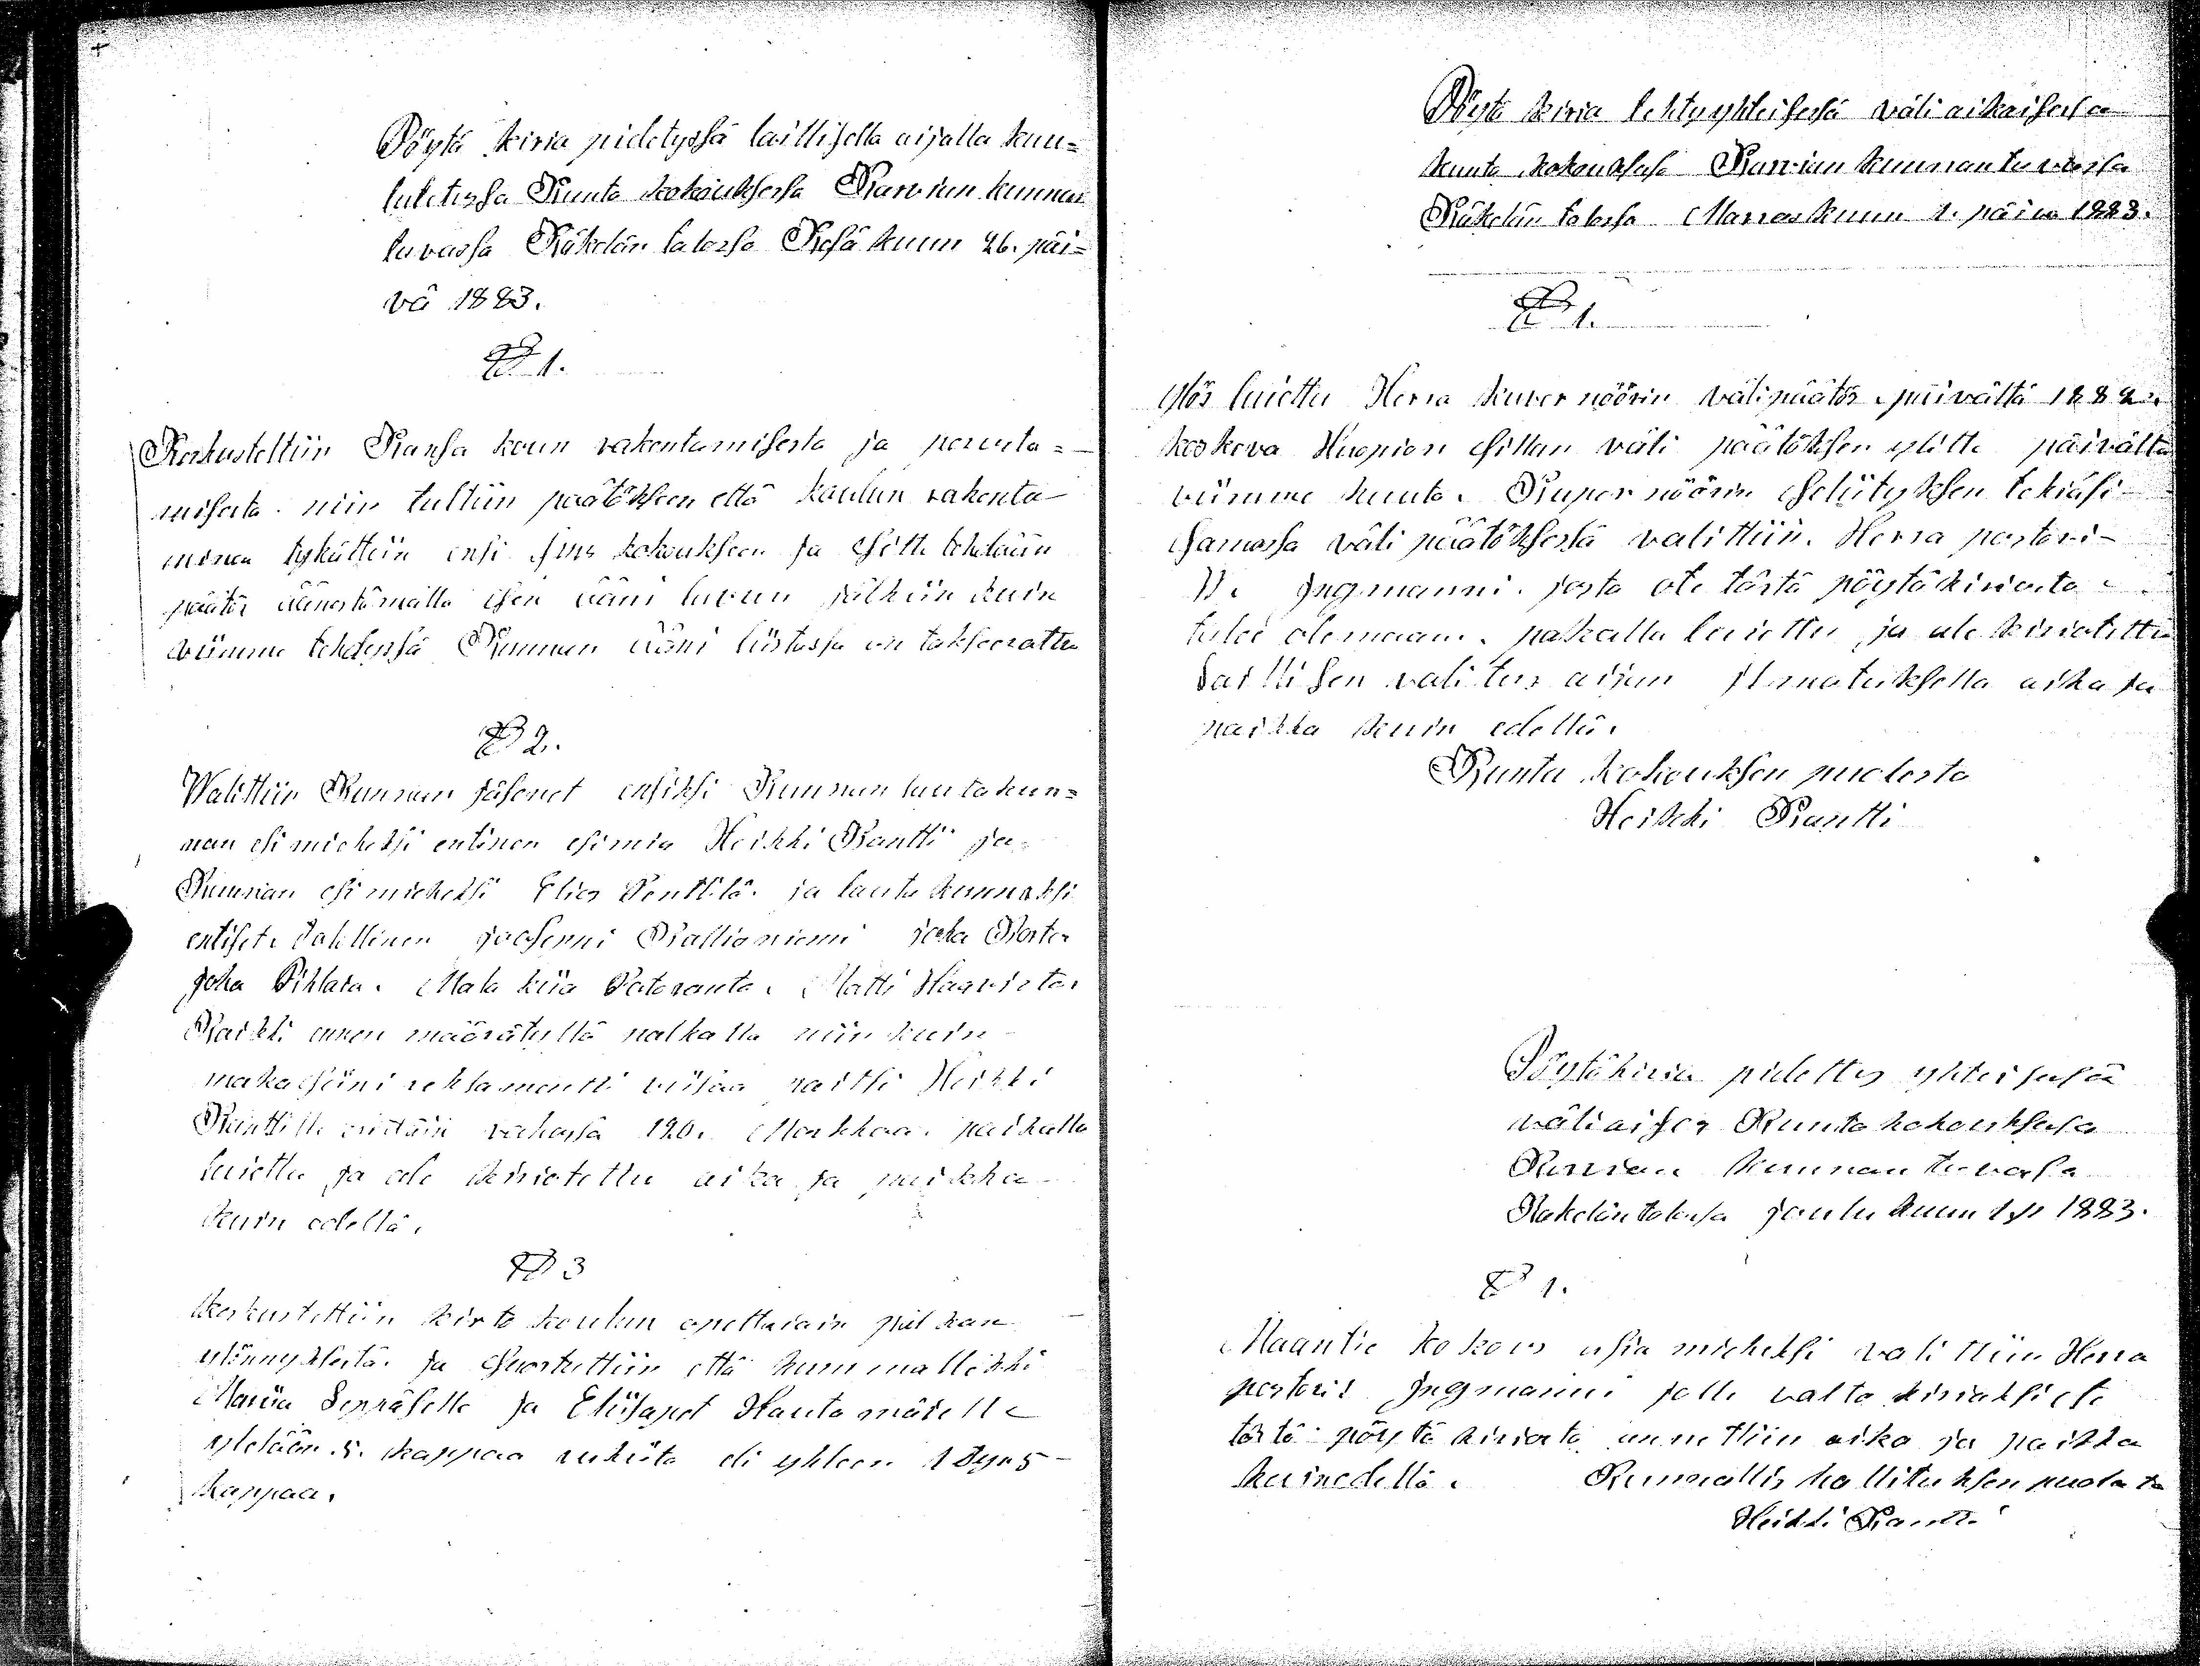 Pöytä kiria pidetyssä laillisella aijalla kuu=
lutetussa Kunta kokouksessa Karvian kunnan
tuvassa Käkelän talossa Kesä kuun 26. päi=
vä 1883.
§ 1.
Keskusteltiin Kansa koun rakentamisesta ja perusta=
misesta niin tultiin päätökseen että koulun rakenta
minen lykättiin ensi kokoukseen ja sitte tehdään
päätös äänestämällä sen ääni luvun jälkiin kuin
viimme tehdyssä Kunnan ääni listassa on takseerattu
§ 2.
Walittiin Kunnan jäsenet ensiksi Kunnan lautakun=
nan esimieheksi entinen esimies Heikki Rantti ja
Kunnan esimieheksi Elias Penttilä ja lautakunnaksi
entiset Kallioniemi joha
Joha Pihlaia. Mala kiia Patoranta. Matti Haavisto.
Kaikki ennen määrätyllä palkalla niin kuin
makasiini reklamentti viisaa paitsi Heikki
Rantille 120. Markkaa. paikalla
luiettu ja ale kiriotettu aika ja paikka
kuin edellä.
§ 3
keskusteltiin kierto koulun opettaiain palkan
ylönnyksestä. ja suostuttiin että kummallekki
Maria Leppäselle ja Eliisapet Hautamäielle
yletään .5. kappaa rukiita eli yhteen 1 Tyn 5
kappaa.
Pöytä kiria tehty yhteisessä väli aikaisessa
kunta kokouksessa Karvian kunnan tuvassa
Käkelän talossa Marras kuun 1. päivä 1883.
§ 1.
ylös luiettu Herra kuver nöörin välipäätös päivältä 1882.
koskeva sillan väli päätöksen päivältä
viimme kuuta. Kuper nöörin selityksen
samassa väli päätöksessä valittiin. Herra pastori
Ingmanni. josta ote tästä pöytäkiriasta
tulee olemaan. paikalla luiettu ja ale kiriotettu
Laillisen valitus aijan ilmotuksella aika ja
paikka kuin edellä.
Kunta kokouksen puolesta
Heikki Rantti
Pöytäkiria pidettys yhteisessä
väliaises Kunta kokouksessa
Karvian kunnan tuvassa
Käkelän talossa joulu kuun 1 p 1883.
§ 1.
Maantie kokous asia mieheksi valittiin Herra
pastori Ingmanni jolle valta kiriaksi ote
tästä pöytä kiriasta annettiin aika ja paikka
kuin edellä. Kunnallis hallituksen puolesta
Heikki Rantti